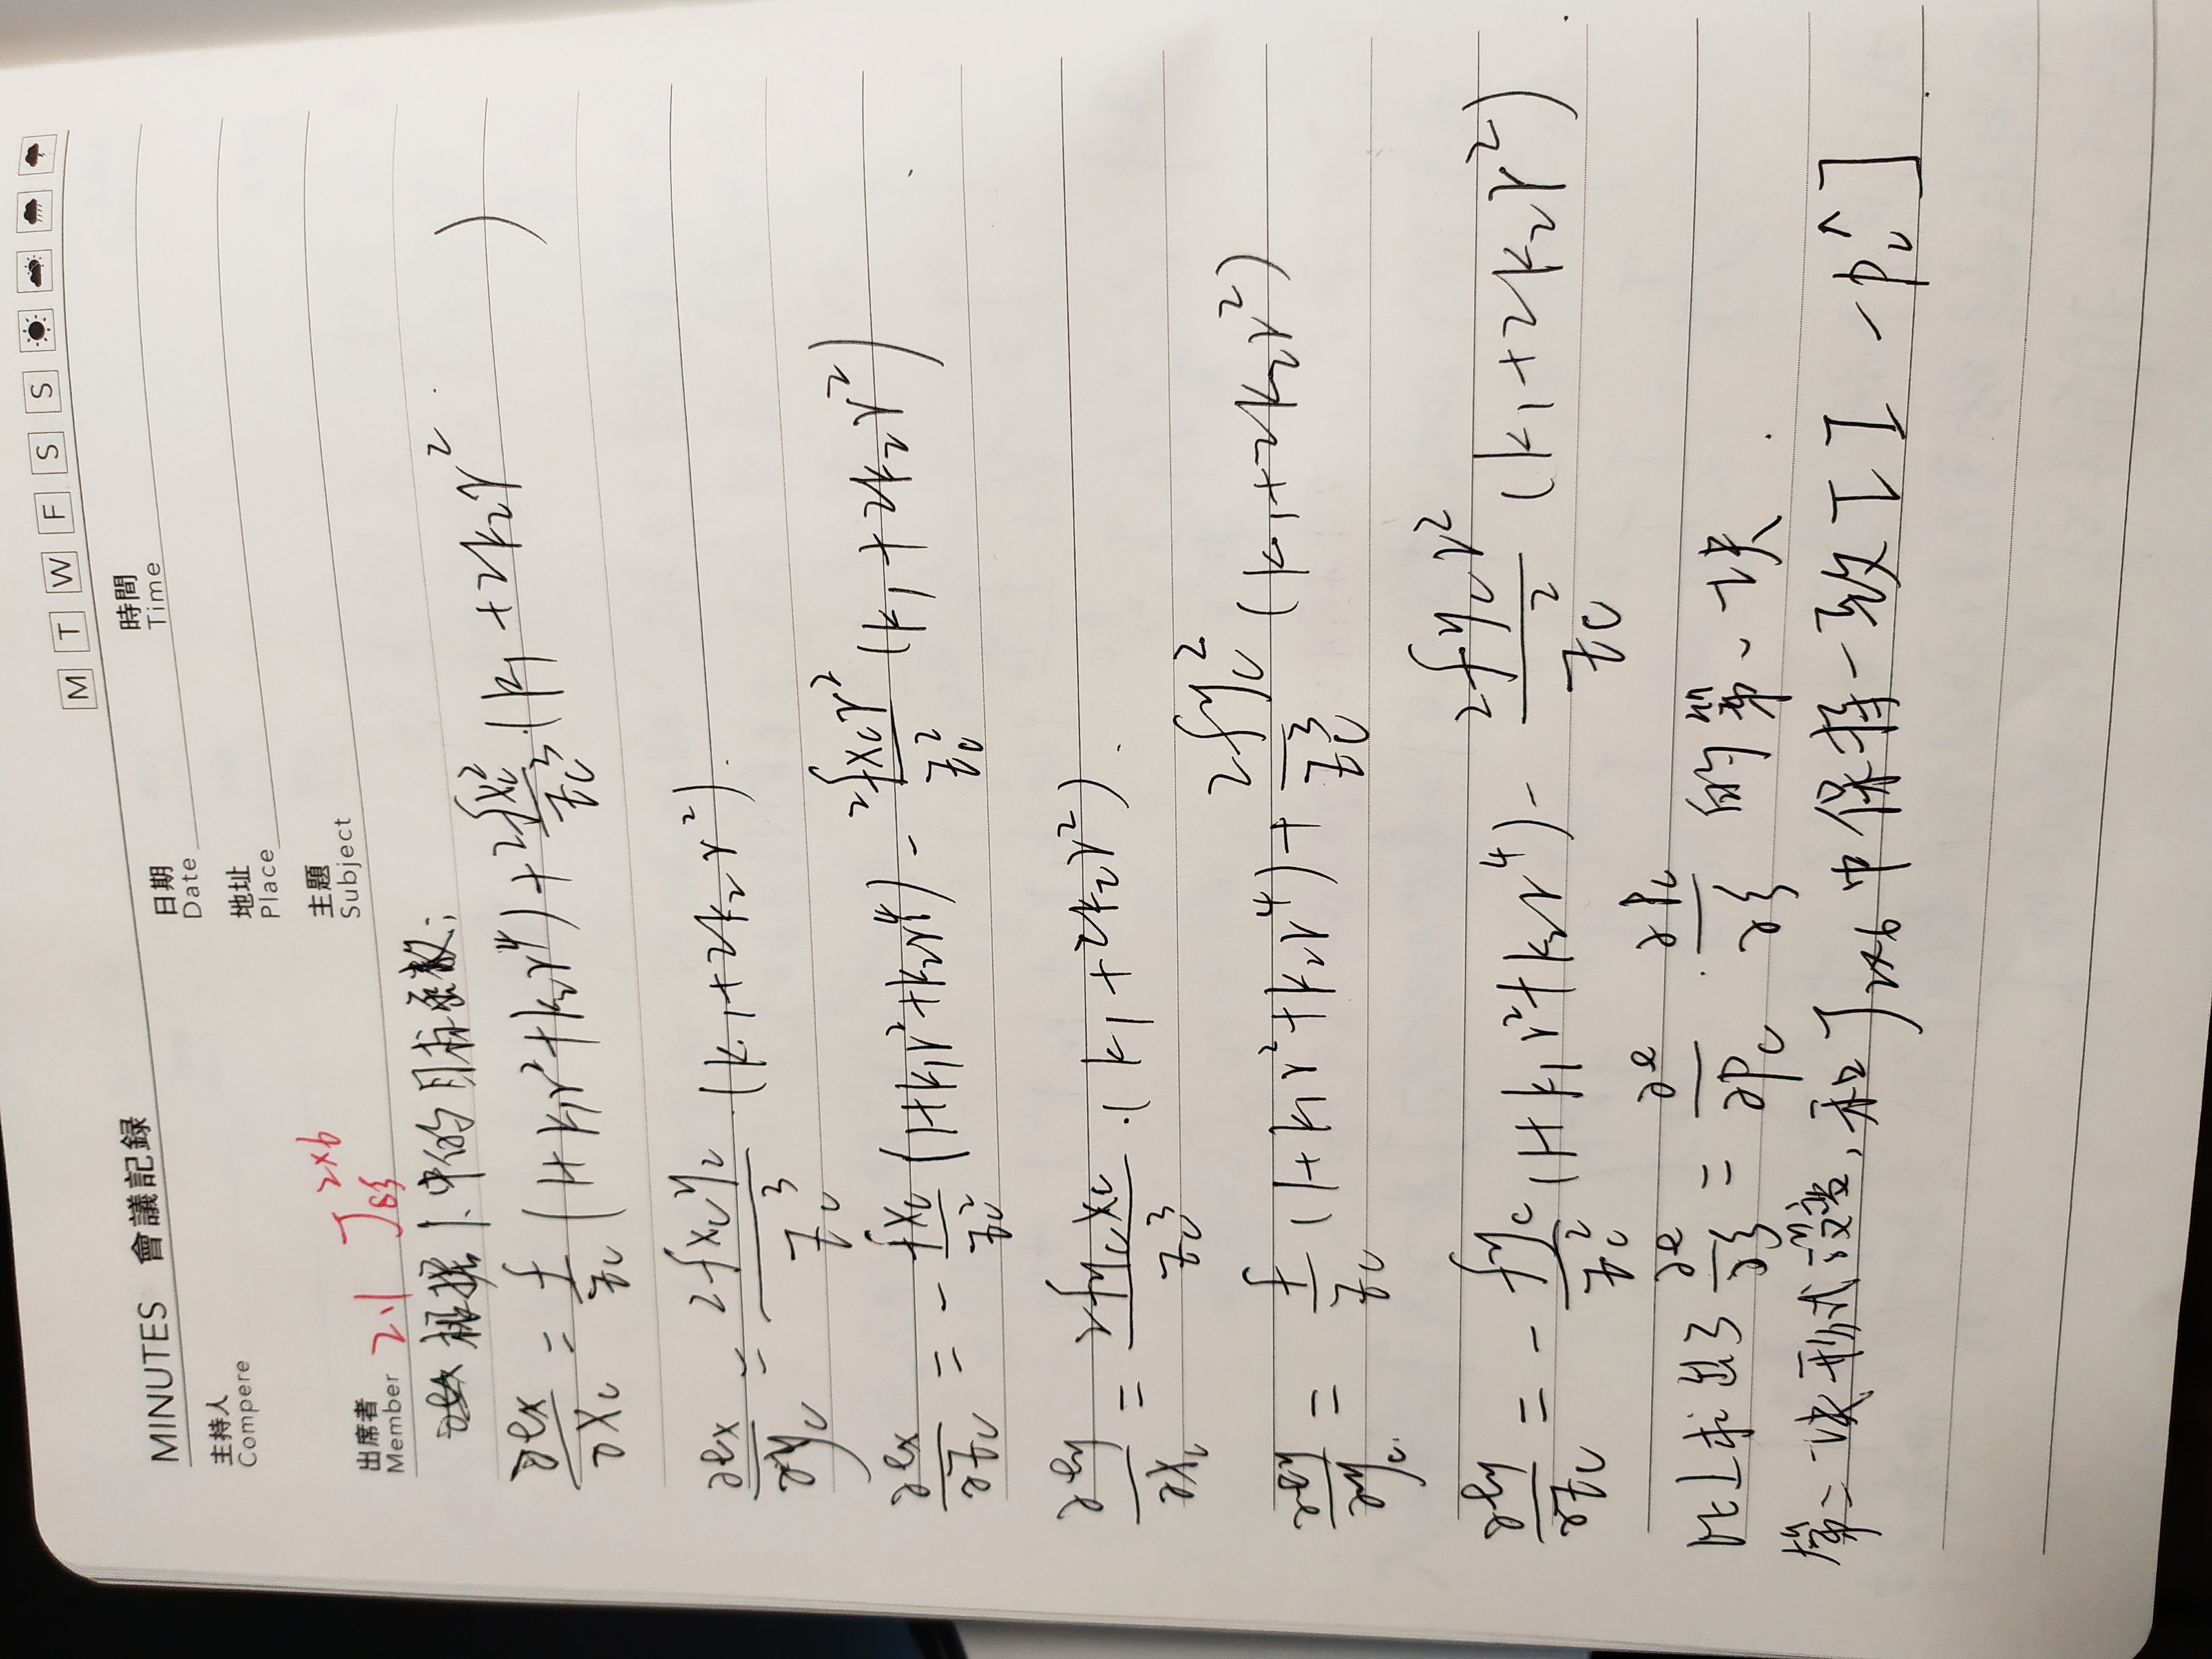 M T W F S S
MINUTES 會議記録
日期 Date
時間 Time
主持人 Compere
地址 Place
主題 Subject
出席者 Member
2.1 J_{eξ}^{2×6}
根据1.中的目标函数:
∂e_x/∂X_c = f/Z_c (1+k_1r^2+k_2r^4) + 2fX_c^2/Z_c^3 · (k_1+2k_2r^2)
∂e_x/∂y_c = 2fx_cy_c/Z_c^3 · (k_1+2k_2r^2).
∂e_x/∂Z_c = - fx_c/Z_c^2 (1+k_1r^2+k_2r^4) - 2fx_cr^2/Z_c^2 (k_1+2k_2r^2)
∂e_y/∂x_c = 2fy_cx_c/Z_c^3 · (k_1+2k_2r^2).
∂e_y/∂y_c = f/Z_c (1+k_1r^2+k_2r^4) + 2fy_c^2/Z_c^3 (k_1+2k_2r^2)
∂e_y/∂Z_c = - fy_c/Z_c^2 (1+k_1r^2+k_2r^4) - 2fy_cr^2/Z_c^2 (k_1+2k_2r^2).
以上求出了 ∂e/∂ξ = ∂e/∂P_c · ∂P_c/∂ξ 的第一块.
第二块形式没变,和J_{2×6}中保持一致[I -p_c^∧].